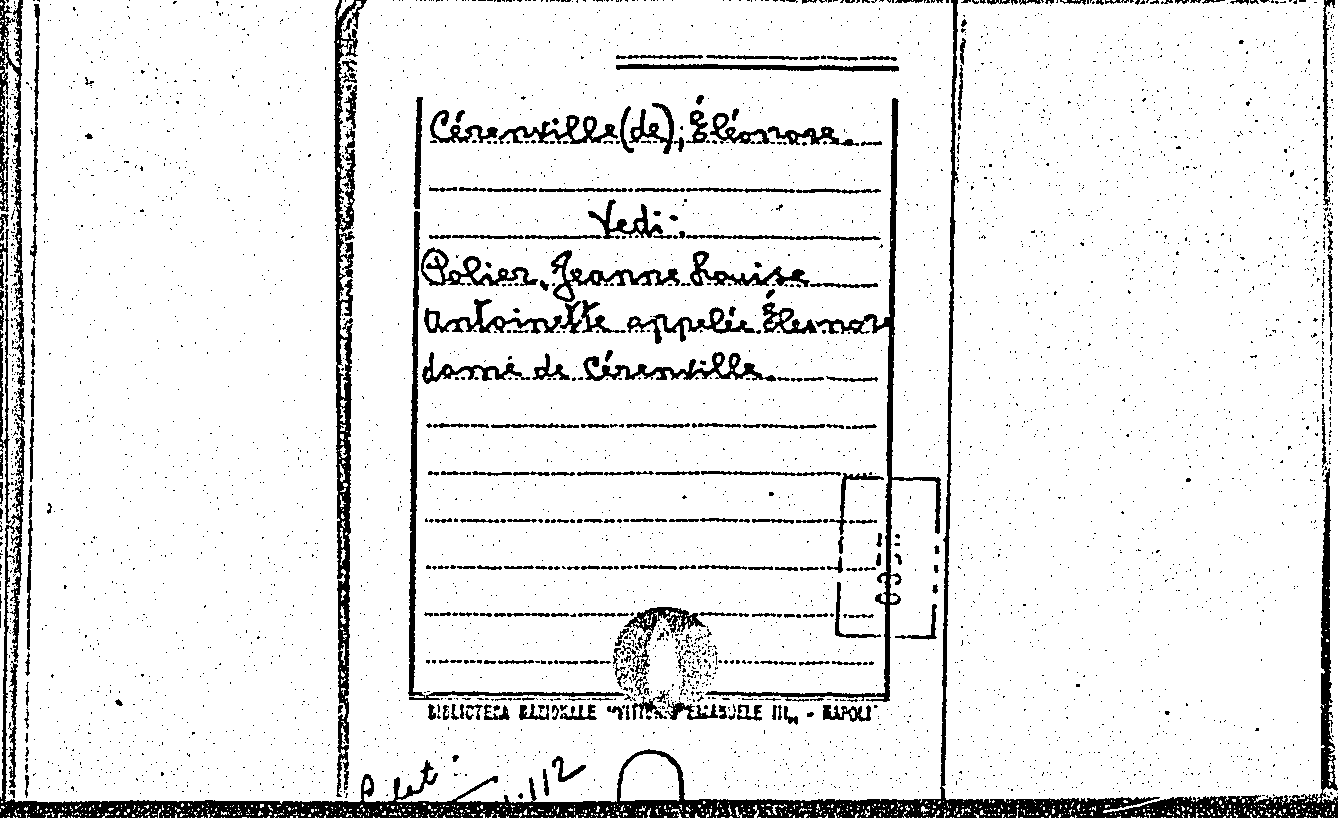 Cérenville (de), Éléonore.
Vedi:
Polier, Jeanne Louise
Antoinette appelée Éleonore
dame de Cérenville.
BIBLIOTECA NAZIONALE "VITTORIO EMANUELE III" - NAPOLI